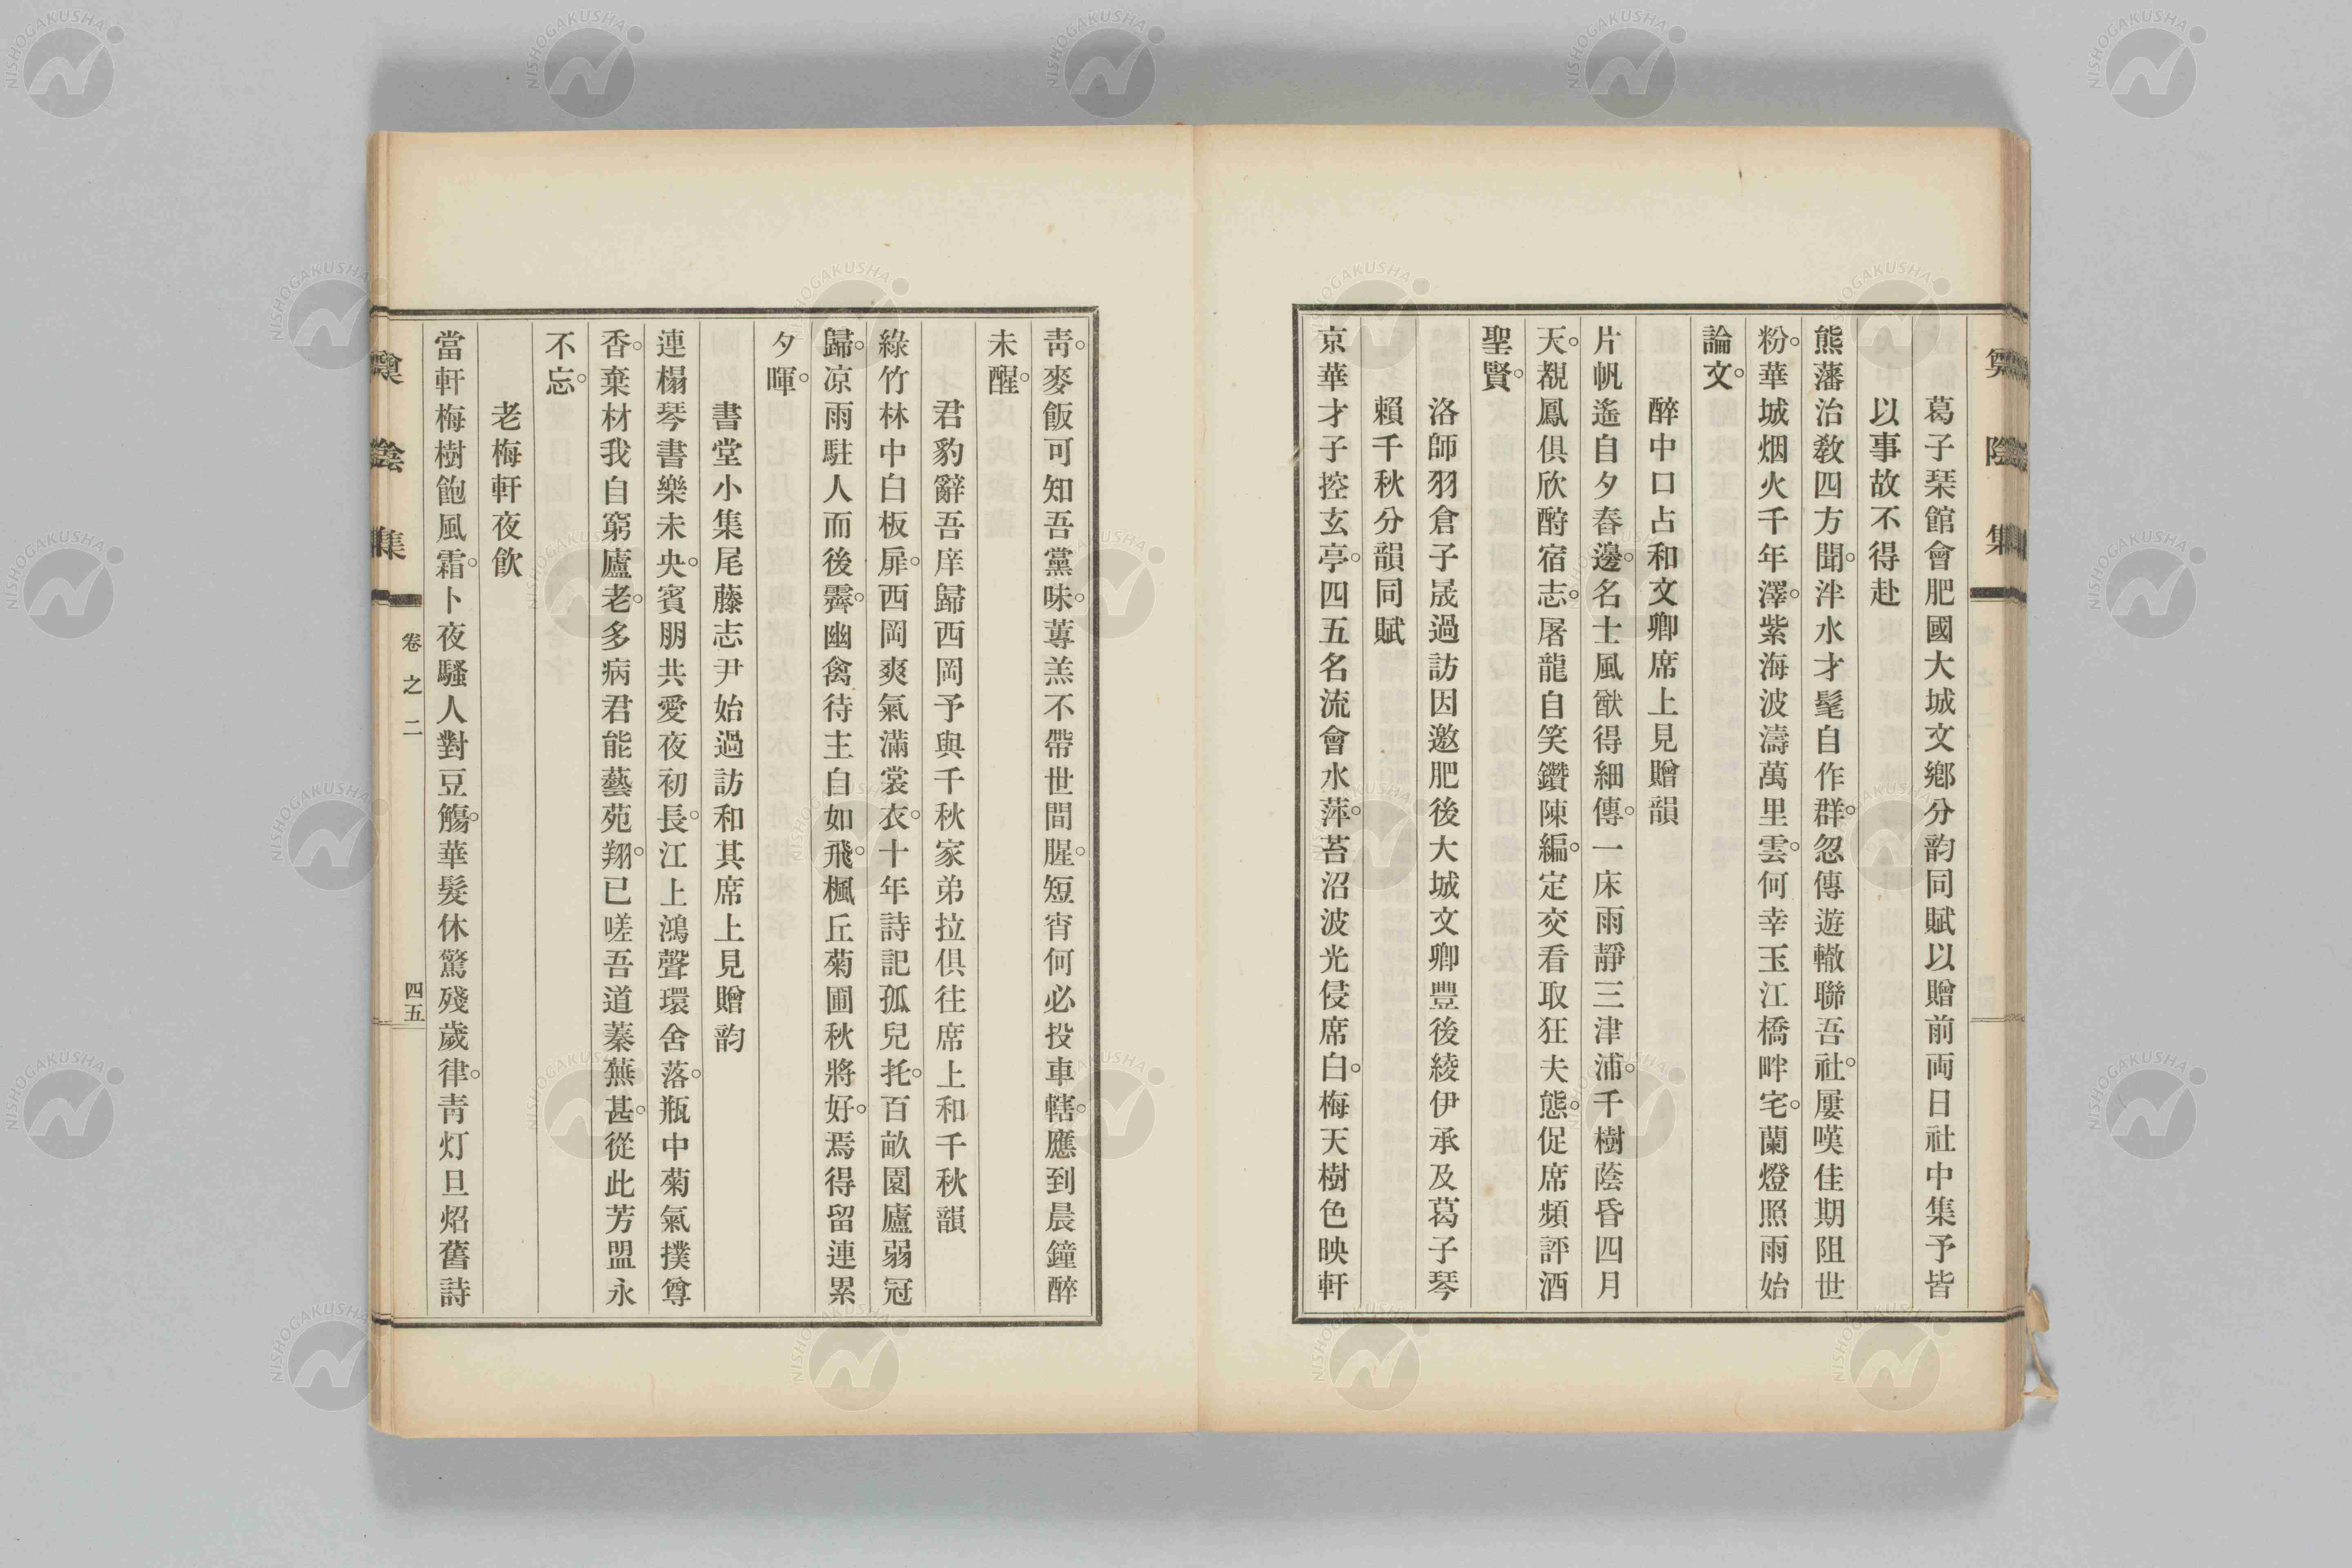 葛子琹館會肥國大城文鄉分韵同賦以贈前両日社中集予皆
以事故不得赴
熊藩治教四方聞。泮水才髦自作群。忽傳遊轍聯吾社。屢嘆佳期阻世
粉。華城烟火千年澤。紫海波濤萬里雲。何幸玉江橋畔宅。蘭燈照雨始
論文。
醉中口占和文卿席上見贈韻
片帆遙自夕春邊。名士風猷得細傳。一床雨靜三津浦。千樹蔭昏四月
天。覩鳳俱欣酧宿志。屠龍自笑鑽陳編。定交看取狂夫態。促席頻評酒
聖賢。
洛師羽倉子晟過訪因邀肥後大城文卿豐後綾伊承及葛子琴
賴千秋分韻同賦
京華才子控玄亭。四五名流會水萍。苔沼波光侵席白。梅天樹色映軒
青。麥飯可知吾黨味。蓴羔不帶世間腥。短宵何必投車轄。應到晨鐘醉
未醒。
君豹辭吾庠歸西岡予與千秋家弟拉俱往席上和千秋韻
綠竹林中白板扉。西岡爽氣滿裳衣。十年詩記孤兒托。百畝園廬弱冠
歸。凉雨駐人而後霽。幽禽待主自如飛。楓丘菊圃秋將好。焉得留連累
夕暉。
書堂小集尾藤志尹始過訪和其席上見贈韵
連榻琴書樂未央。賓朋共愛夜初長。江上鴻聲環舍落。瓶中菊氣撲尊
香。棄材我自窮廬老。多病君能藝苑翔。已嗟吾道蓁蕪甚。從此芳盟永
不忘。
老梅軒夜飲
當軒梅樹飽風霜。卜夜騷人對豆觴。華髮休驚殘歲律。青灯旦炤舊詩
陰集
卷之二
四五
NISHOGAKUSHA